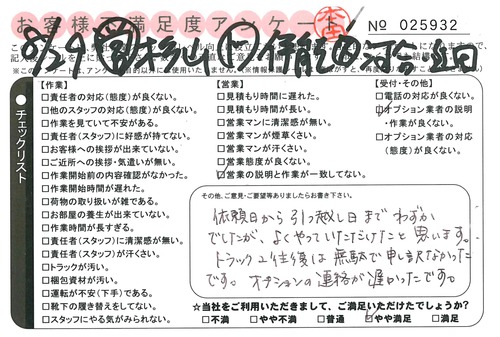 お客様満足度アンケート
№ 025932
8/29
杉山
伊能
河合
チェックリスト
【作業】
□責任者の対応(態度)が良くない。
□他のスタッフの対応(態度)が良くない。
□作業を見ていて不安がある。
□責任者(スタッフ)に好感が持てない。
□お客様への挨拶が出来ていない。
□ご近所への挨拶・気遣いが無い。
□作業開始前の内容確認がなかった。
□作業開始時間が遅れた。
□荷物の取り扱いが雑である。
□お部屋の養生が出来ていない。
□作業時間が長すぎる。
□責任者(スタッフ)に清潔感が無い。
□責任者(スタッフ)が汗くさい。
□トラックが汚い。
□梱包資材が汚い。
□運転が不安(下手)である。
□靴下の履き替えをしてない。
□スタッフにやる気がみられない。
【営業】
□見積もり時間に遅れた。
□見積もり時間が長い。
□営業マンに清潔感が無い。
□営業マンが煙草くさい。
□営業マンが汗くさい。
□営業態度が良くない。
□営業の説明と作業が一致してない。
【受付・その他】
□電話の対応が良くない。
□オプション業者の説明
・作業が良くない。
□オプション業者の対応
(態度)が良くない。
その他、ご意見・ご要望等ありましたらお書き下さい。
依頼日から引っ越し日までわずか
でしたが、よくやっていただけたと思います。
トラック2往復は無駄で申し訳なかった
です。オプションの連絡が遅かったです。
☆当社をご利用いただきまして、ご満足いただけたでしょうか?
□不満 □やや不満 □普通 ☑やや満足 □満足